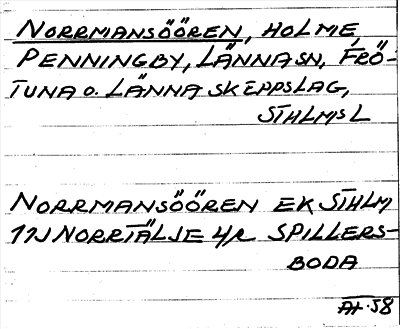 NORRMANSÖÖREN, HOLME,
PENNINGBY, LÄNNA SN, FRÖ-
TUNA O. LÄNNA SKEPPSLAG,
STHLMS L
NORRMANSÖÖREN EK STHLM
11J NORRTÄLJE 4/2 SPILLERS-
BODA
AH-58